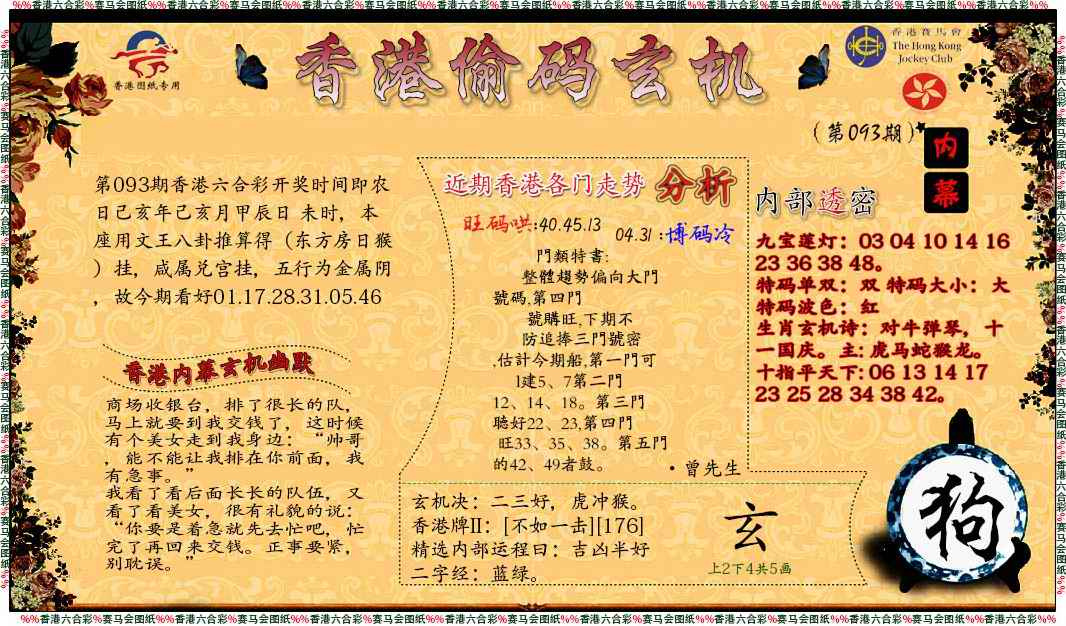 %%香港六合彩%赛马会图纸%%香港六合彩%赛马会图纸%%香港六合彩%赛马会图纸%%香港六合彩%赛马会图纸%%香港六合彩%赛马会图纸%%香港六合彩%赛马会图纸%%香港六合彩%%
香港图纸专用
香港偷码玄机
香港賽馬會
The Hong Kong
Jockey Club
(第093期)
内
幕
第093期香港六合彩开奖时间即农
日己亥年己亥月甲辰日 未时，本
座用文王八卦推算得（东方房日猴
）挂，咸属兑宫挂，五行为金属阴
，故今期看好01.17.28.31.05.46
香港内幕玄机幽默
商场收银台，排了很长的队，
马上就要到我交钱了，这时候
有个美女走到我身边：“帅哥
，能不能让我排在你前面，我
有急事。”
我看了看后面长长的队伍，又
看了看美女，很有礼貌的说：
“你要是着急就先去忙吧，忙
完了再回来交钱。正事要紧，
别耽误。”
近期香港各门走势 分析
旺码哄:40.45.13
04.31:博码冷
門類特書:
整體趨勢偏向大門
號碼,第四門
號購旺,下期不
防追捧三門號密
,估計今期船,第一門可
1建5、7第二門
12、14、18。第三門
聽好22、23,第四門
旺33、35、38。第五門
的42、49者鼓。
·曾先生
玄机决：二三好，虎冲猴。
香港牌II：[不如一击][176]
精选内部运程曰：吉凶半好
二字经：蓝绿。
玄
上2下4共5画
内部透密
九宝莲灯：03 04 10 14 16
23 36 38 48。
特码单双：双 特码大小：大
特码波色：红
生肖玄机诗：对牛弹琴，十
一国庆。主: 虎马蛇猴龙。
十指平天下: 06 13 14 17
23 25 28 34 38 42。
狗
%%香港六合彩%赛马会图纸%%香港六合彩%赛马会图纸%%香港六合彩%赛马会图纸%%香港六合彩%赛马会图纸%%香港六合彩%赛马会图纸%%香港六合彩%赛马会图纸%%香港六合彩%%